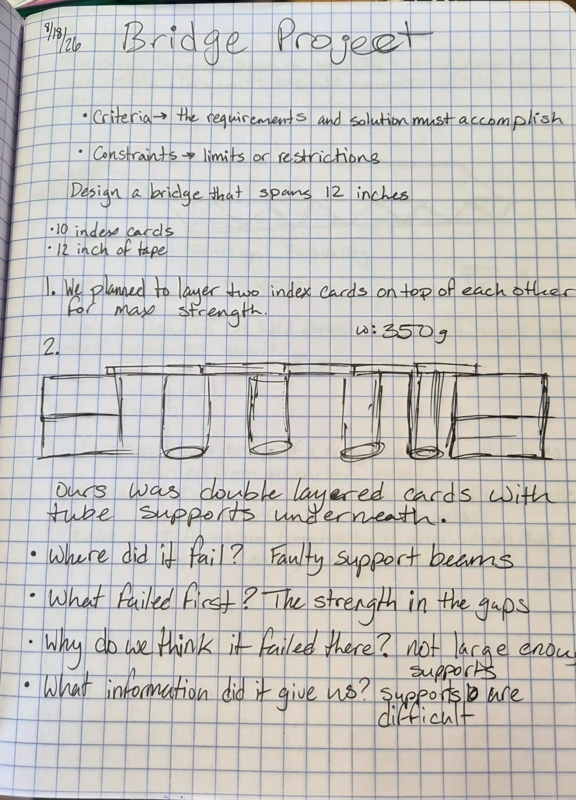 8/18/26
Bridge Project
• Criteria → the requirements and solution must accomplish
• Constraints → limits or restrictions
Design a bridge that spans 12 inches
• 10 index cards
• 12 inch of tape
1. We planned to layer two index cards on top of each other
for max strength.
w: 350g
2.
Ours was double layered cards with
tube supports underneath.
• Where did it fail? Faulty support beams
• What failed first? The strength in the gaps
• Why do we think it failed there? not large enou
supports
• What information did it give us? supports are
difficult